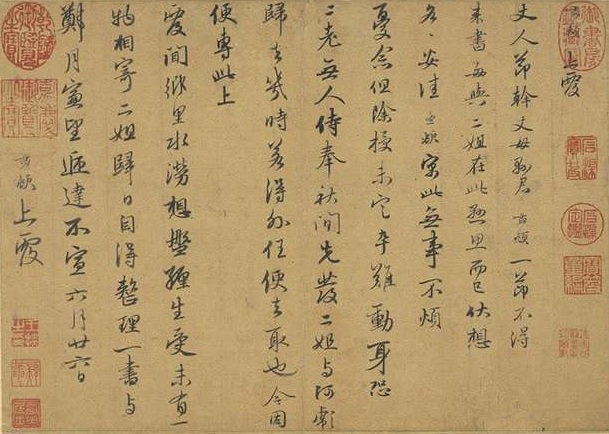 孟頫上覆
丈人節幹丈母縣君孟頫一節不得
來書每與二姐在此懸思而已伏想
各各安佳孟頫寓此無事不煩
憂念但除授未定卒難動身恐
二老無人侍奉秋間先發二姐與阿彪
歸去幾時若得外任便去取也今因
便專此上
覆聞鄉里水潦想盤纏生受未有一
物相寄二姐歸日自得整理一書與
鄭月窗望遞達不宣六月廿六日
孟頫上覆